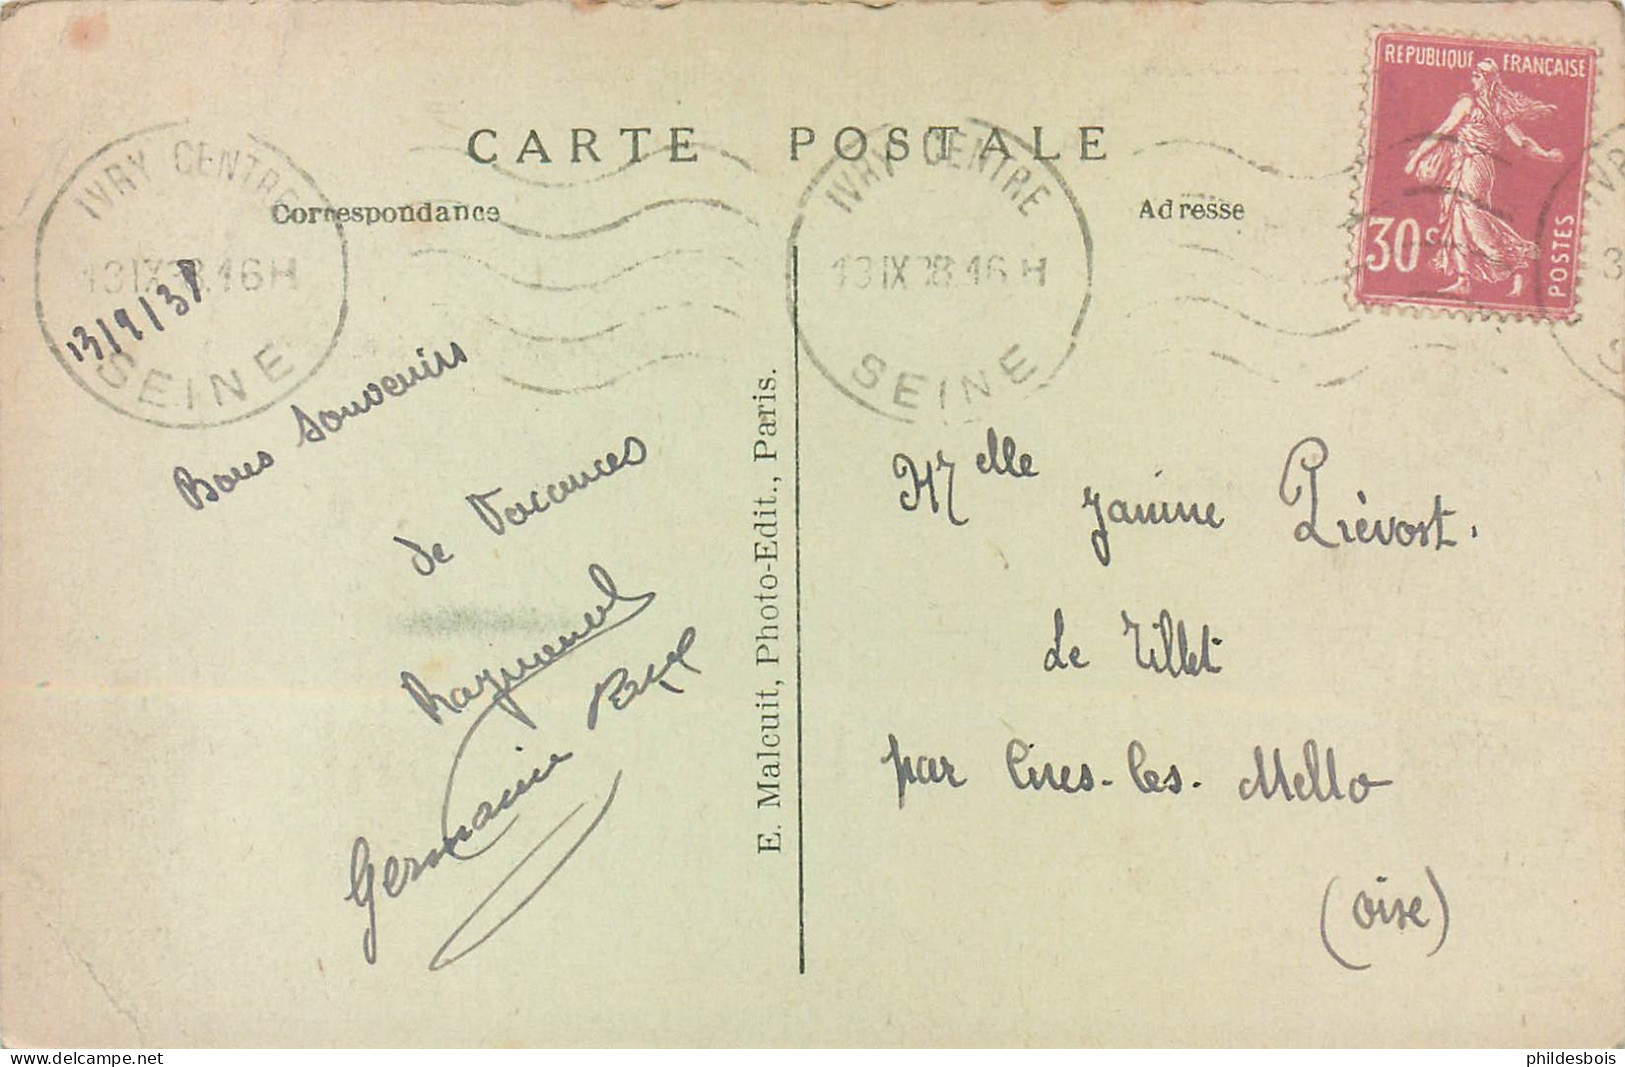 CARTE POSTALE
Correspondance
Adresse
REPUBLIQUE FRANÇAISE
30c
POSTES
IVRY CENTRE
13 IX 38 16 H
SEINE
IVRY CENTRE
13 IX 38 16 H
SEINE
13/9/38
Bons Souvenirs
de Vacances
Raymond
Germaine
E. Malcuit, Photo-Edit., Paris.
Melle Janine Prévost.
Le Tillet
par Cires-les-Mello
(Oise)
delcampe.net
phildesbois